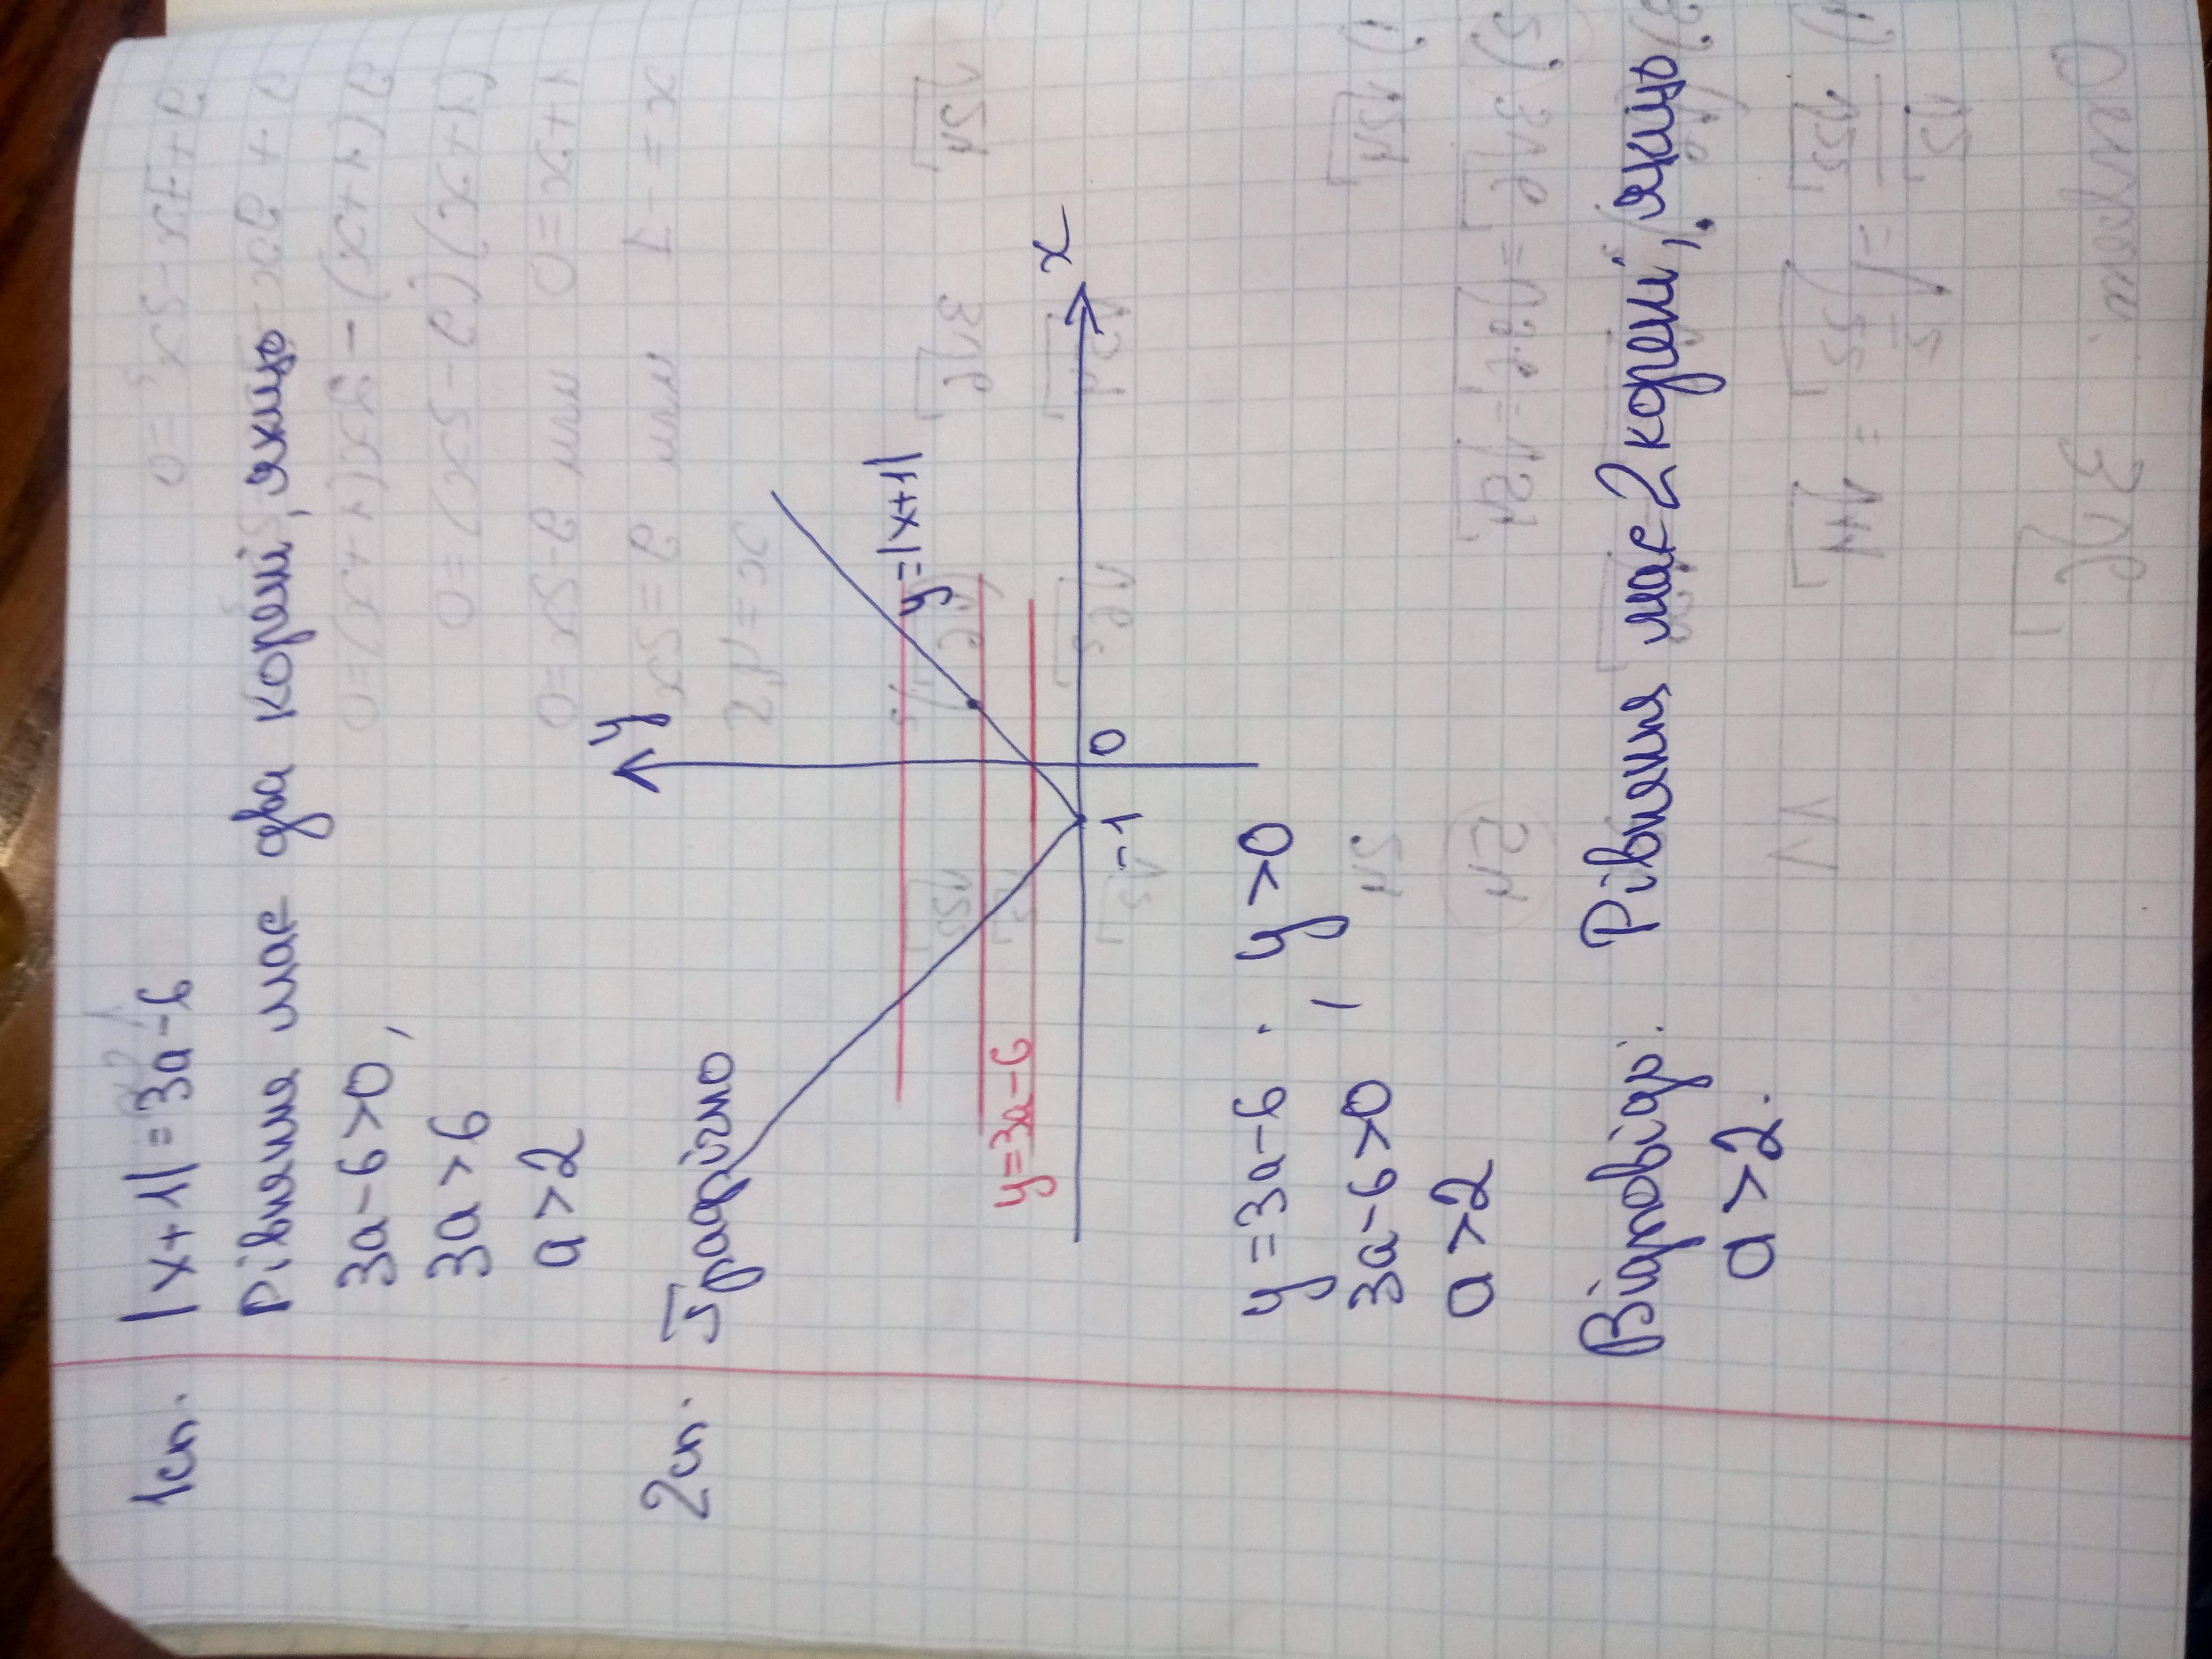 1сп. |x+1|=3a-6
Рівняння має два корені, якщо
3a-6>0,
3a>6
a>2
2сп. Графічно
y
y=|x+1|
x
y=3a-6
-1
0
y=3a-6. y>0
3a-6>0,
a>2
Відповідь: Рівняння має 2 корені, якщо
a>2.